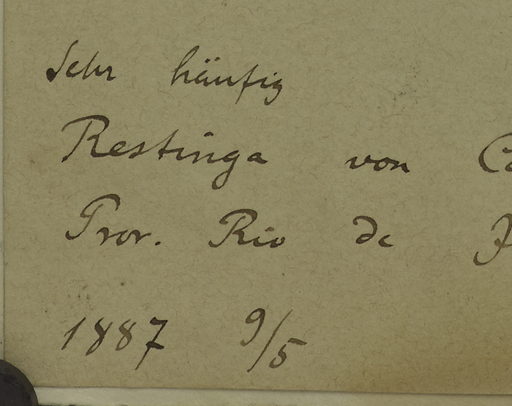 Sehr häufig
Restinga von
Prov. Rio de
1887 9/5